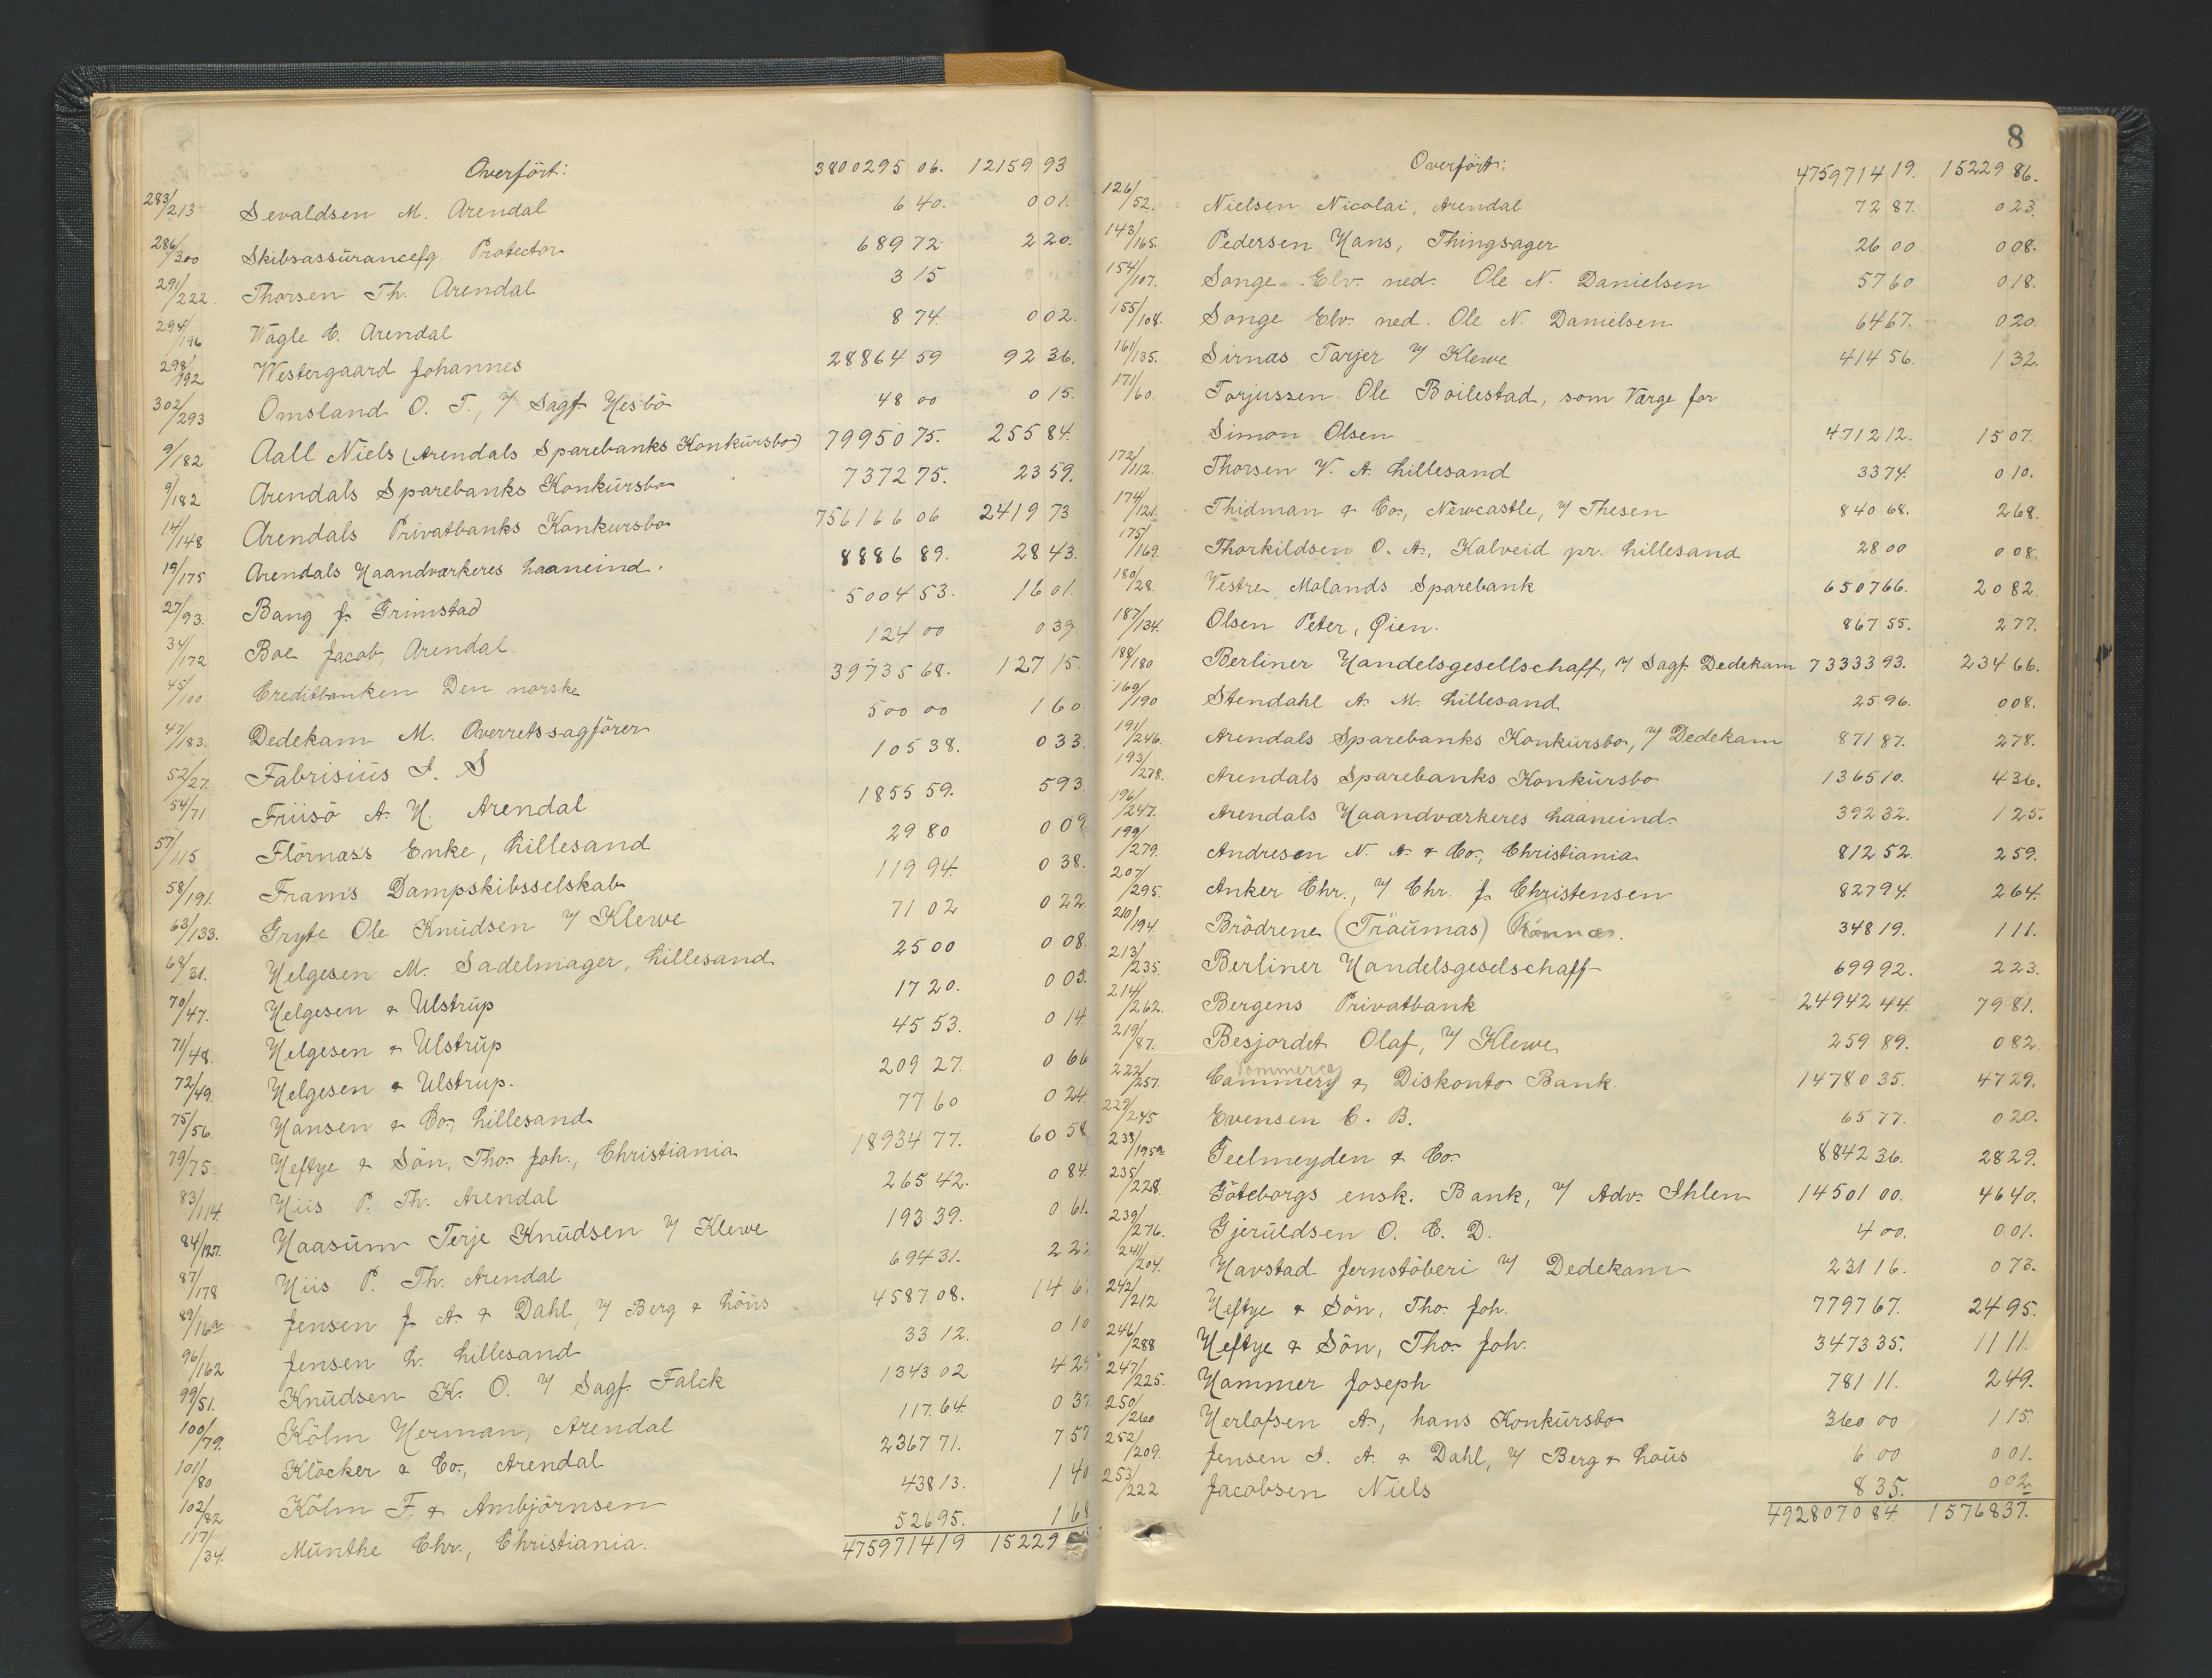 Overført: 3800295 06. 12159 93
283/213 Sevaldsen M. Arendal 6 40. 0 01.
286/300 Skibsassürancefg. Protector 689 72 2 20.
291/222. Thorsen Th. Arendal 3 15
294/196 Vagle C. Arendal 8 74. 0 02.
298/192 Westergaard Johannes 28864 59 92 36.
302/293 Omsland O. T., 7/ Sagf. Hesbö 48 00 0 15.
9/182 Aall Niels (Arendals Sparebanks Konkürsbo) 79950 75. 255 84.
9/182 Arendals Sparebanks Konkürsbo 7372 75. 23 59.
14/148 Arendals Privatbanks Konkursbo 756166 06 2419 73
19/175 Arendals Haandværkeres Laaneind. 8886 89. 28 43.
27/93. Bang J. Grimstad 5004 53. 16 01.
34/172 Boe Jacob, Arendal. 124 00 0 39
45/100 Creditbanken Den norske 39735 68. 127 15.
47/83. Dedekam M. Overretssagförer 500 00 1 60
52/27. Fabrisiüs I. S 105 38. 0 33
54/71 Friisö A. H. Arendal 1855 59. 5 93
57/115 Flörnæs's Enke, Lillesand 29 80 0 09
58/191. Fram's Dampskibsselskab 119 94. 0 38.
63/133. Gryte Ole Knüdsen 7/ Klewe 71 02 0 22
68/31. Helgesen M. Sadelmager, Lillesand 25 00 0 08.
70/47. Helgesen & Ulstrüp 17 20. 0 05.
71/48. Helgesen & Ulstrüp 45 53. 0 14
72/49. Helgesen & Ulstrup. 209 27. 0 66
75/56. Hansen & Co., Lillesand 77 60 0 24.
79/75. Heftye & Sön, Tho. Joh., Christiania 18934 77. 60 58
83/114. Hiis P. Th. Arendal 265 42. 0 84.
84/127. Haasüm Terje Knüdsen 7/ Klewe 193 39. 0 61.
87/178 Hiis P. Th. Arendal 694 31. 2 22
89/16a Jensen J. A. & Dahl, 7/ Berg & Löüs 4587 08. 14 6
96/162 Jensen L. Lillesand 33 12. 0 10
99/51. Knüdsen K. O. 7/ Sagf. Falck 1343 02 4 29
100/79. Kölm Herman, Arendal 117.64. 0 37
101/80 Klöcker & Co., Arendal 2367 71. 7 57
102/82 Kölm F. & Ambjörnsen 438 13. 1 40
117/34. Münthe Chr., Christiania. 526 95. 1 68
4759714 19 15229
8
Overført: 4759714 19. 15229 86.
126/52. Nielsen Nicolai, Arendal 72 87. 0 23
143/165. Pedersen Hans, Thingsager 26 00 0 08.
154/107. Songe Elv. ned. Ole N. Danielsen 57 60 0 18.
155/108. Songe Elv. ned. Ole N. Danielsen 64 67. 0 20.
161/135. Sirnæs Tarjer 7/ Klewe 414 56. 1 32.
171/60. Torjussen Ole Boilestad, som Værge for
Simon Olsen 4712 12. 15 07.
172/112. Thorsen W. A. Lillesand 33 74. 0 10.
174/121. Thidman & Co., Newcastle, 7/ Thesen 840 68. 2 68.
175/169. Thorkildsen O. A., Kalveid pr. Lillesand 28 00 0 08.
180/28. Vestre Molands Sparebank 6507 66. 20 82.
187/134. Olsen Peter, Øien. 867 55. 2 77.
188/180 Berliner Handelsgesellschaff, 7/ Sagf. Dedekam 73333 93. 234 66.
169/190 Stendahl A. M. Lillesand 25 96. 0 08.
191/246. Arendals Sparebanks Konkürsbo, 7/ Dedekam 871 87. 2 78.
193/278. Arendals Sparebanks Konkürsbo 1365 10. 4 36.
196/247. Arendals Haandværkeres Laaneind. 392 32. 1 25.
199/279. Andresen N. A. & Co., Christiania 812 52. 2 59.
207/295. Anker Chr., 7/ Chr. J. Christensen 827 94. 2 64.
210/194. Brödrene (Träümas) 348 19. 1 11.
213/235. Berliner Handelsgeselschaff 699 92. 2 23.
214/262. Bergens Privatbank 24942 44. 79 81.
219/87. Besjordet Olaf, 7/ Klewe 259 89. 0 82.
Commerce
222/257. Cammery & Diskonto Bank. 14780 35. 47 29.
229/245 Evensen C. B. 65 77. 0 20.
233/195a Geelmeyden & Co. 8842 36. 28 29.
235/228. Göteborgs ensk. Bank, 7/ Adv. Ihlen 14501 00. 46 40.
239/276. Gjerüldsen O. C. D. 4 00. 0 01.
241/204. Havstad Jernstöberi 7/ Dedekam 231 16. 0 73.
242/212 Heftye & Sön, Tho. Joh. 7797 67. 24 95.
246/288 Heftye & Sön, Tho. Joh. 3473 35. 11 11.
247/225. Hammer Joseph 781 11. 2 49.
250/260 Herlofsen A., hans Konkürsbo 360 00 1 15.
252/209. Jensen I. A. & Dahl, 7/ Berg & Loüs 6 00 0 01.
253/222 Jacobsen Niels 8 35. 0 02
4928070 84. 15768 37.